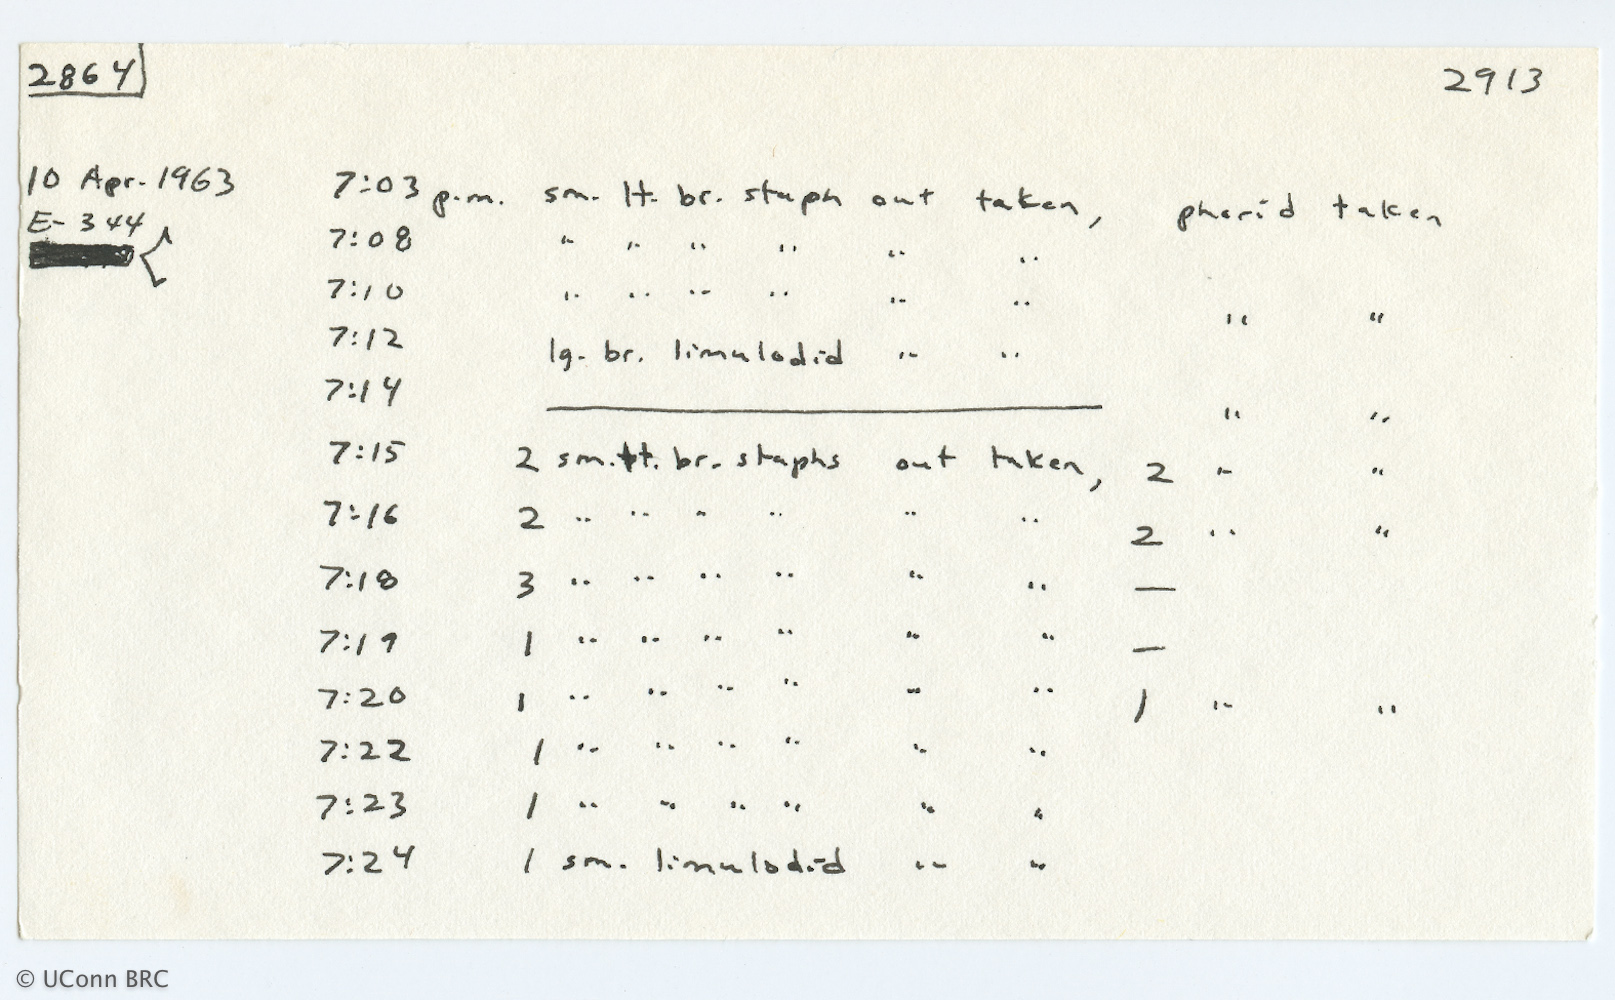 2864 2913
10 Apr. 1963 7:03 p.m. sm. lt. br. staph out taken, phorid taken
E-344 7:08 " " " " " "
7:10 " " " " " " " "
7:12 lg. br. limulodid " "
7:14 ———— " "
7:15 2 sm. lt. br. staphs out taken, 2 " "
7:16 2 " " " " " " 2 " "
7:18 3 " " " " " " —
7:19 1 " " " " " " —
7:20 1 " " " " " " 1 " "
7:22 1 " " " " " "
7:23 1 " " " " " "
7:24 1 sm. limulodid " "
© UConn BRC